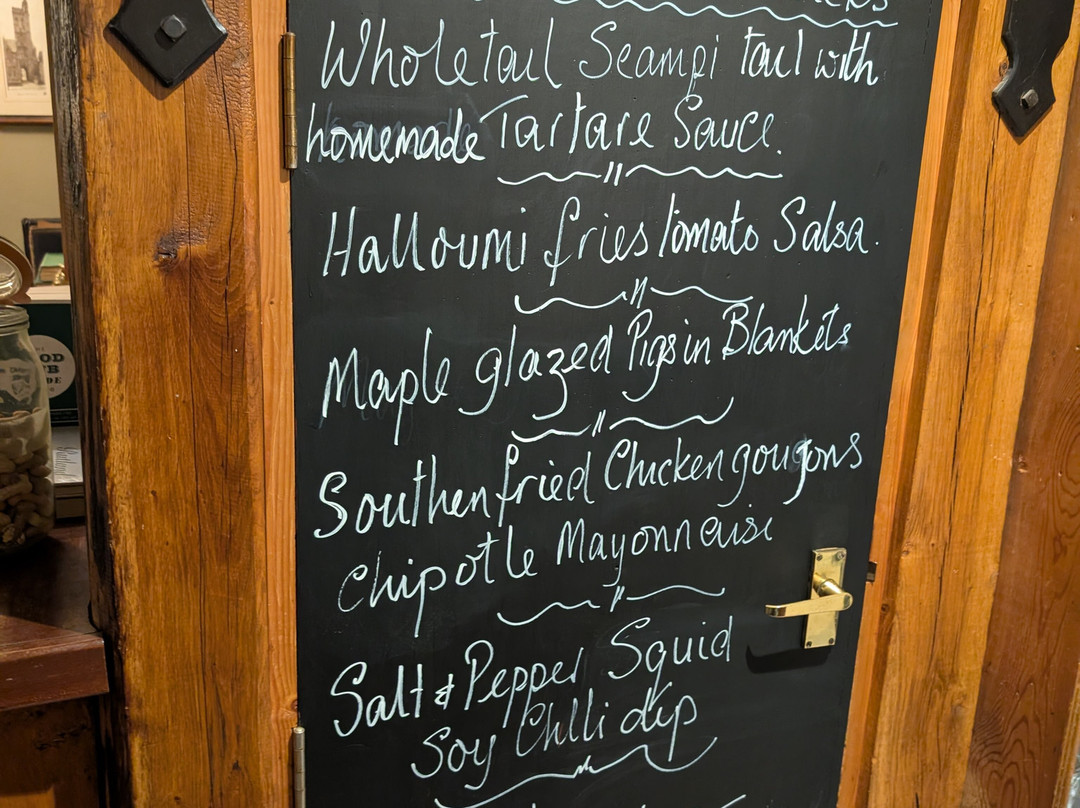 Wholetail Scampi tail with
homemade Tartare Sauce.
Halloumi fries tomato Salsa.
Maple glazed Pigs in Blankets
Southen fried Chicken gougons
Chipotle Mayonnaise
Salt & Pepper Squid
Soy Chilli dip